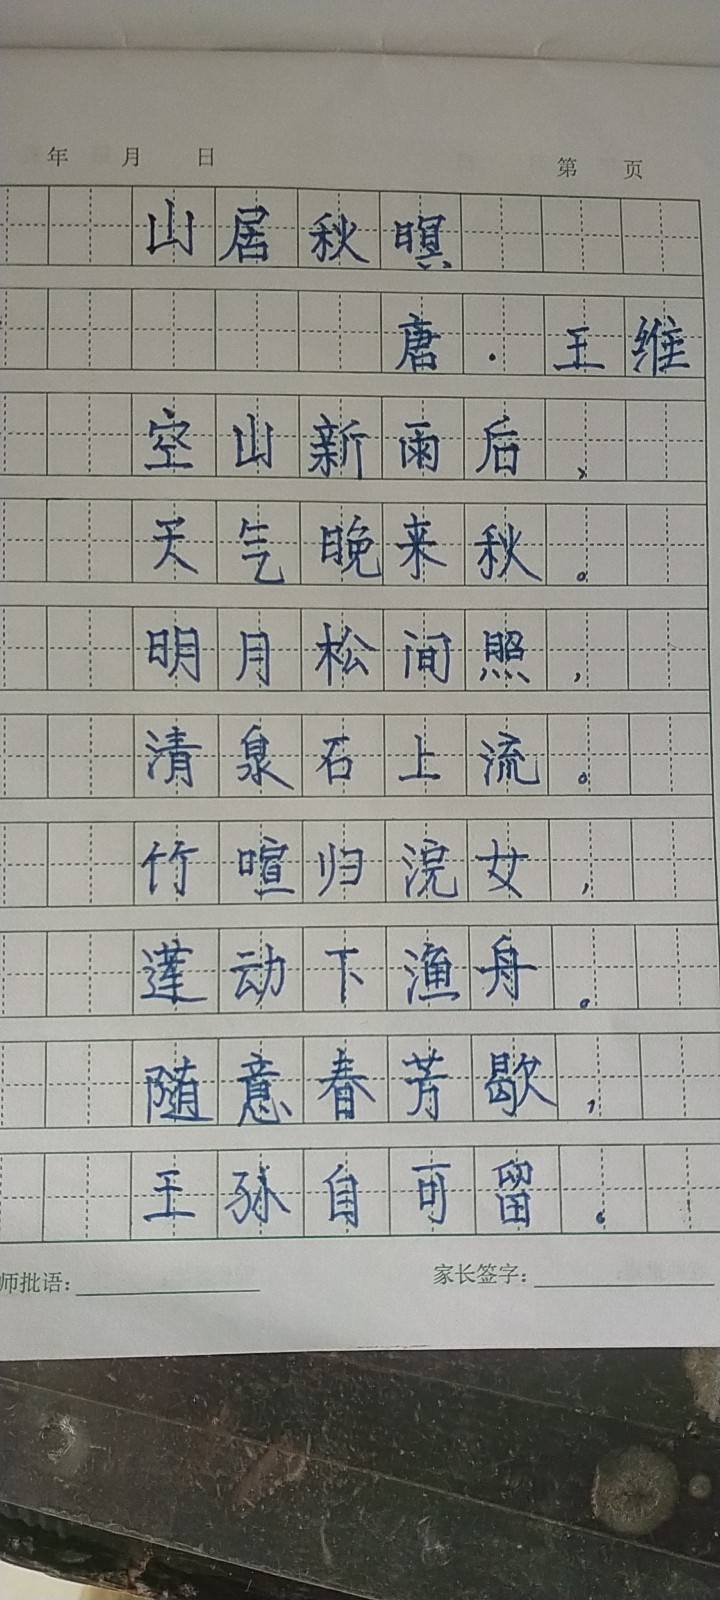 年 月 日 第 页
山居秋暝
唐·王维
空山新雨后、
天气晚来秋。
明月松间照，
清泉石上流。
竹喧归浣女，
莲动下渔舟。
随意春芳歇，
王孙自可留。
师批语： 家长签字：